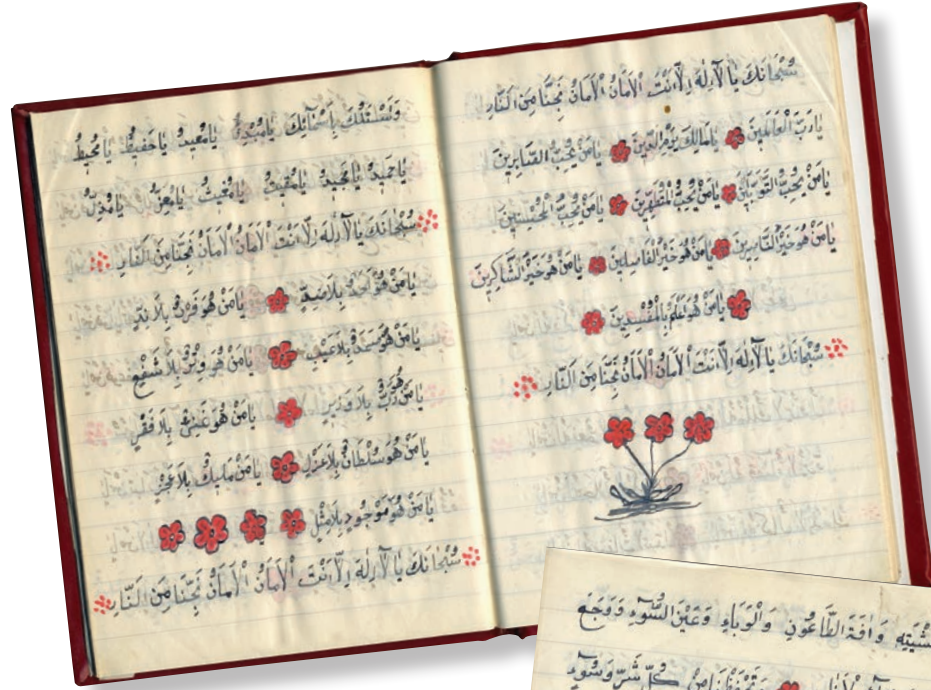 سُبْحَانَكَ يَا لَآ اِلٰهَ اِلَّا اَنْتَ الْاَمَانُ الْاَمَانُ نَجِّنَا مِنَ النَّارِ
يَارَبَّ الْعَالَمِينَ يَامَالِكَ يَوْمِ الدِّينَ يَامَنْ يُحِبُّ الصَّابِرِينَ
يَامَنْ يُحِبُّ التَّوَّابِينَ يَامَنْ يُحِبُّ الْمُتَطَهِّرِينَ يَامَنْ يُحِبُّ الْمُحْسِنِينَ
يَامَنْ هُوَ خَيْرُ النَّاصِرِينَ يَامَنْ هُوَ خَيْرُ الْفَاصِلِينَ يَامَنْ هُوَ خَيْرُ الشَّاكِرِينَ
يَامَنْ هُوَ اَعْلَمُ بِالْمُفْسِدِينَ
سُبْحَانَكَ يَا لَآ اِلٰهَ اِلَّا اَنْتَ الْاَمَانُ الْاَمَانُ نَجِّنَا مِنَ النَّارِ
وَنَسْئَلُكَ بِاَسْمَآئِكَ يَامُعِيدُ يَاحَفِيظُ يَامُحِيطُ
يَاحَمِيدُ يَامَجِيدُ يَامُقِيتُ يَامُغِيثُ يَامُعِزُّ يَامُذِلُّ
سُبْحَانَكَ يَا لَآ اِلٰهَ اِلَّا اَنْتَ الْاَمَانُ الْاَمَانُ نَجِّنَا مِنَ النَّارِ
يَامَنْ هُوَ اَحَدٌ بِلَا ضِدٍّ يَامَنْ هُوَ فَرْدٌ بِلَا نِدٍّ
يَامَنْ هُوَ صَمَدٌ بِلَا عَيْبٍ يَامَنْ هُوَ وِتْرٌ بِلَا شَفْعٍ
يَامَنْ هُوَ رَبٌّ بِلَا وَزِيرٍ يَامَنْ هُوَ غَنِىٌّ بِلَا فَقْرٍ
يَامَنْ هُوَ سُلْطَانٌ بِلَا عَزْلٍ يَامَنْ مَلِيكٌ بِلَا عَجْزٍ
يَامَنْ هُوَ مَوْجُودٌ بِلَا مِثْلٍ
سُبْحَانَكَ يَا لَآ اِلٰهَ اِلَّا اَنْتَ الْاَمَانُ الْاَمَانُ نَجِّنَا مِنَ النَّارِ
وَاٰفَةِ الطَّاعُونِ وَالْوَبَاءِ وَعَيْنِ السُّوءِ وَوَجَعِ
كُلِّ شَرٍّ وَسُوءٍ